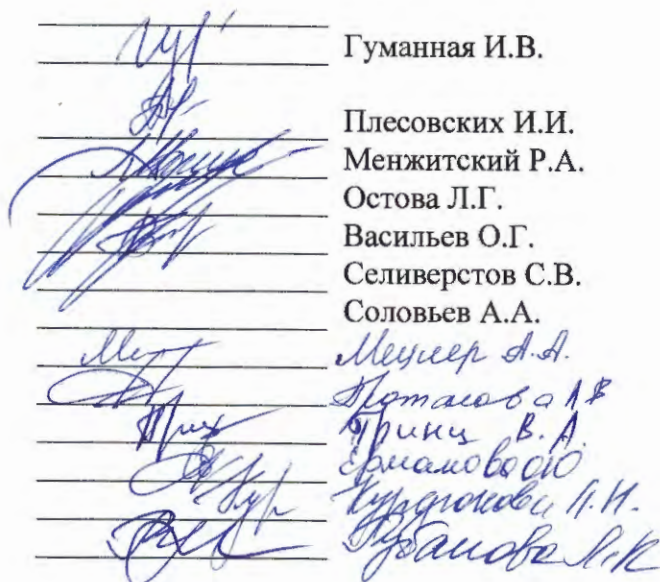 Гуманная И.В.
Плесовских И.И.
Менжитский Р.А.
Остова Л.Г.
Васильев О.Г.
Селиверстов С.В.
Соловьев А.А.
Мецлер А.А.
Потапова
Принц В.А.
Ермакова
Курдюкова
Рубанова